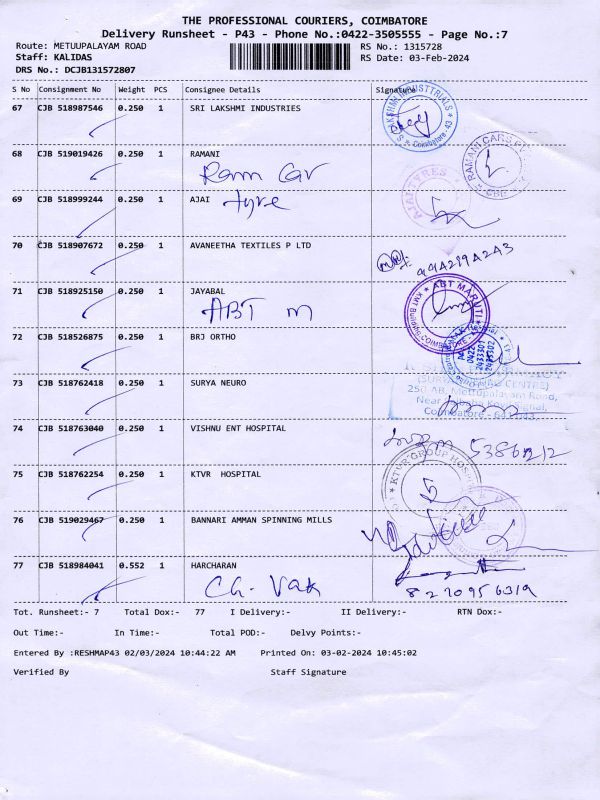 THE PROFESSIONAL COURIERS, COIMBATORE
Delivery Runsheet - P43 - Phone No.:0422-3505555 - Page No.:7
Route: METUUPALAYAM ROAD RS No.: 1315728
Staff: KALIDAS RS Date: 03-Feb-2024
DRS No.: DCJB131572807
S No Consignment No Weight PCS Consignee Details Signature
67 CJB 518987546 0.250 1 SRI LAKSHMI INDUSTRIES
68 CJB 519019426 0.250 1 RAMANI
Ram Car
RAMANI CARS
69 CJB 518999244 0.250 1 AJAI
tyre
AJAI TYRES
70 CJB 518907672 0.250 1 AVANEETHA TEXTILES P LTD
71 CJB 518925150 0.250 1 JAYABAL
ABT m
ABT MARUTI
72 CJB 518526875 0.250 1 BRJ ORTHO
73 CJB 518762418 0.250 1 SURYA NEURO
Mettupalayam Road,
Coimbatore
74 CJB 518763040 0.250 1 VISHNU ENT HOSPITAL
75 CJB 518762254 0.250 1 KTVR HOSPITAL
KTVR GROUP
76 CJB 519029467 0.250 1 BANNARI AMMAN SPINNING MILLS
77 CJB 518984041 0.552 1 HARCHARAN
8270956319
Tot. Runsheet:- 7 Total Dox:- 77 I Delivery:- II Delivery:- RTN Dox:-
Out Time:- In Time:- Total POD:- Delvy Points:-
Entered By :RESHMAP43 02/03/2024 10:44:22 AM Printed On: 03-02-2024 10:45:02
Verified By Staff Signature